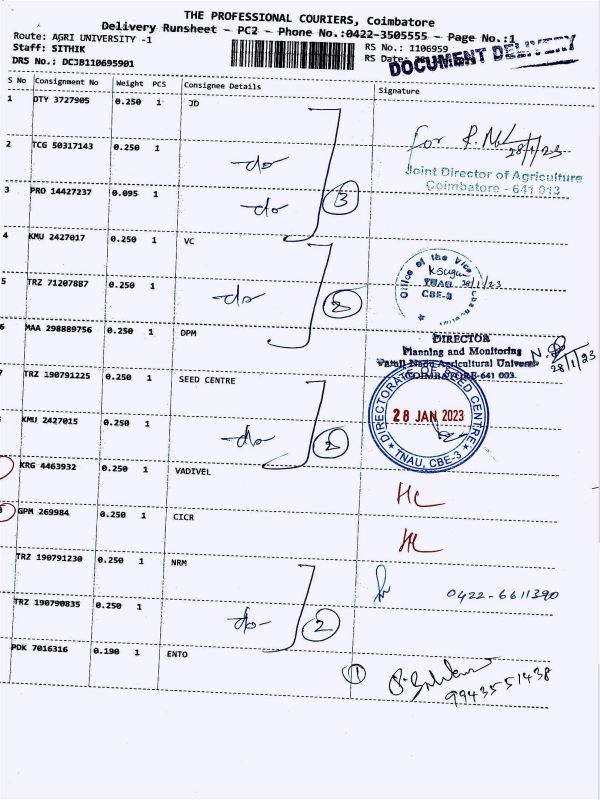 THE PROFESSIONAL COURIERS, Coimbatore
Delivery Runsheet - PC2 - Phone No.:0422-3505555 - Page No.:1
Route: AGRI UNIVERSITY -1
RS No.: 1106959
Staff: SITHIK
RS Date:
DRS No.: DCJB110695901
DOCUMENT DELIVERY
S No Consignment No Weight PCS Consignee Details Signature
1 DTY 3727905 0.250 1 JD
for
28/1/23
2 TCG 50317143 0.250 1 do
Joint Director of Agriculture
Coimbatore - 641 013
3 PRO 14427237 0.095 1 do 3
4 KMU 2427017 0.250 1 VC
Office of the Vice
TNAU 28/1/23
CBE-3
5 TRZ 71207887 0.250 1 do 2
6 MAA 298889756 0.250 1 DPM
DIRECTOR
Planning and Monitoring
Tamil Nadu Agricultural University
COIMBATORE-641 003.
28/1/23
7 TRZ 190791225 0.250 1 SEED CENTRE
DIRECTORATE OF SEED CENTRE
28 JAN 2023
TNAU, CBE-3
KMU 2427015 0.250 1 do 2
KRG 4463932 0.250 1 VADIVEL
GPM 269984 0.250 1 CICR
TRZ 190791230 0.250 1 NRM
0422-6611390
TRZ 190790835 0.250 1 do 2
PDK 7016316 0.190 1 ENTO
1
9943551438